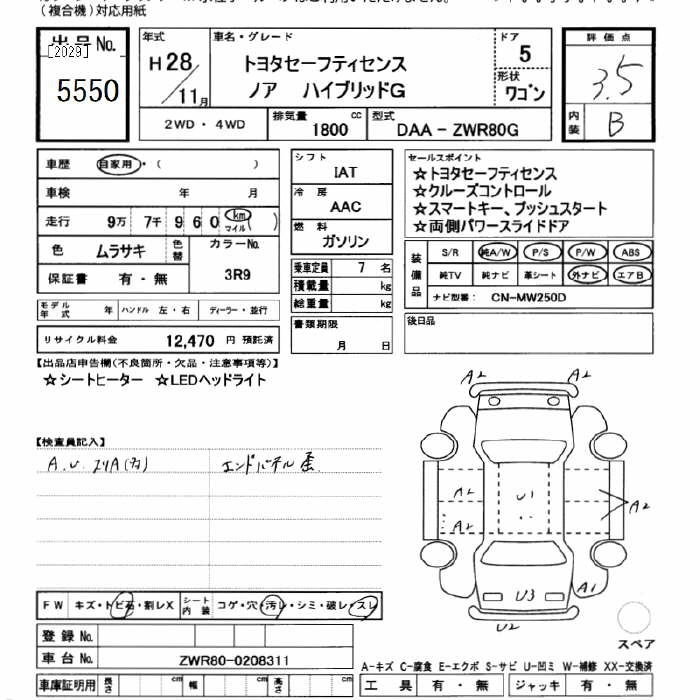 (複合機)対応用紙
出品No.
[2029]
5550
年式
H28/11月
車名・グレード
トヨタセーフティセンス
ノア ハイブリッドG
ドア
5
形状
ワゴン
評価点
3.5
内装
B
2WD・4WD
排気量
1800 cc
型式
DAA-ZWR80G
車歴 自家用・( )
車検 年 月
走行 9万 7千 9 6 0 km マイル ( )
色 ムラサキ
色替
カラーNo.
3R9
保証書 有・無
モデル年式 年
ハンドル 左・右
ディーラー・並行
リサイクル料金 12,470 円 預託済
シフト
IAT
冷房
AAC
燃料
ガソリン
乗車定員 7 名
積載量 kg
総重量 kg
書類期限
月 日
セールスポイント
☆トヨタセーフティセンス
☆クルーズコントロール
☆スマートキー、プッシュスタート
☆両側パワースライドドア
装備品
S/R 純A/W P/S P/W ABS
純TV 純ナビ 革シート 外ナビ エアB
ナビ型番: CN-MW250D
後日品
【出品店申告欄(不良箇所・欠品・注意事項等)】
☆シートヒーター ☆LEDヘッドライト
【検査員記入】
A.U.
エンドパネル歪
A2 A2
A2 U1 A2
A2
U3 A1
U2
スペア
FW キズ・トビ石・割レX
シート内装 コゲ・穴・汚レ・シミ・破レ・スレ
登録No.
車台No. ZWR80-0208311
車庫証明用 長さ cm 幅 cm 高さ cm
A-キズ C-腐食 E-エクボ S-サビ U-凹ミ W-補修 XX-交換済
工具 有・無 ジャッキ 有・無